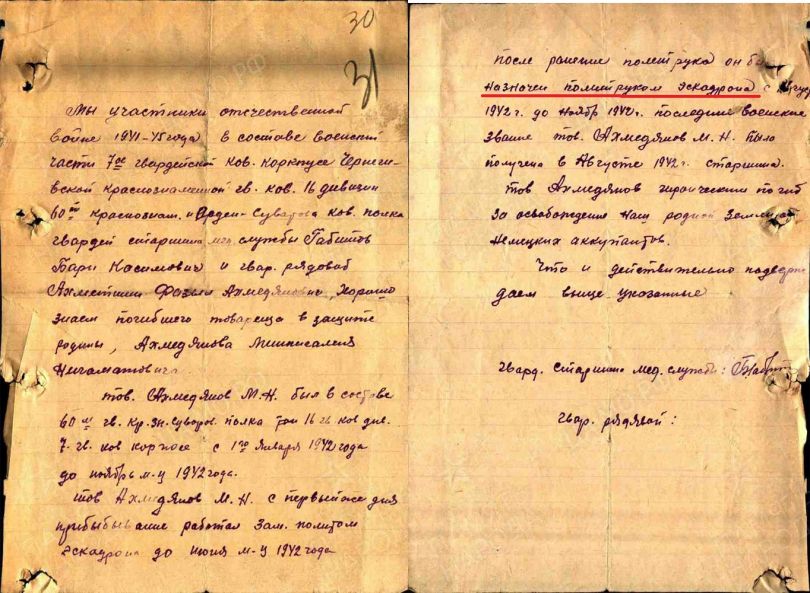 30
31
Мы участники отечественной
войне 1941-45 года в составе военский
части 7ое гвардейской ков. корпусе Черниги-
вской краснознаменной гв. ков. 16 дивизии
60ый краснознам. и Орден Суварова ков. полка
гвардей старшина мед. службы Габитов
Бари Касимович и гвар. рядовой
Ахметшин Ахмедянович, хорошо
знаем погибшего товареща в защите
родины, Ахмедянова
Нигаматовича.
тов. Ахмедянов М.Н. был в составе
60 гв. Кр. зн. Суворов. полка 16 гв ков див.
7. гв. ков корпосе с 1го января 1942 года
до ноябрь м-ц 1942 года.
тов Ахмедянов М.Н. с первый же дня
прибыбвание работал зам. политом
эскадрона до июня м-ц 1942 года
после ранение политрука он
назначен политруком эскадрона с
1942 г. до ноябр 1942 г. последние военское
звание тов. Ахмедянов М.Н. было
получена в Августе 1942 г. старшина.
тов Ахмедянов героическим погиб
за освобождение наш родной земли
Немецких аккупантов.
Что и действительно подверж
даем выще указанные
гвард. старшина мед. службы:
гвар. рядявой: